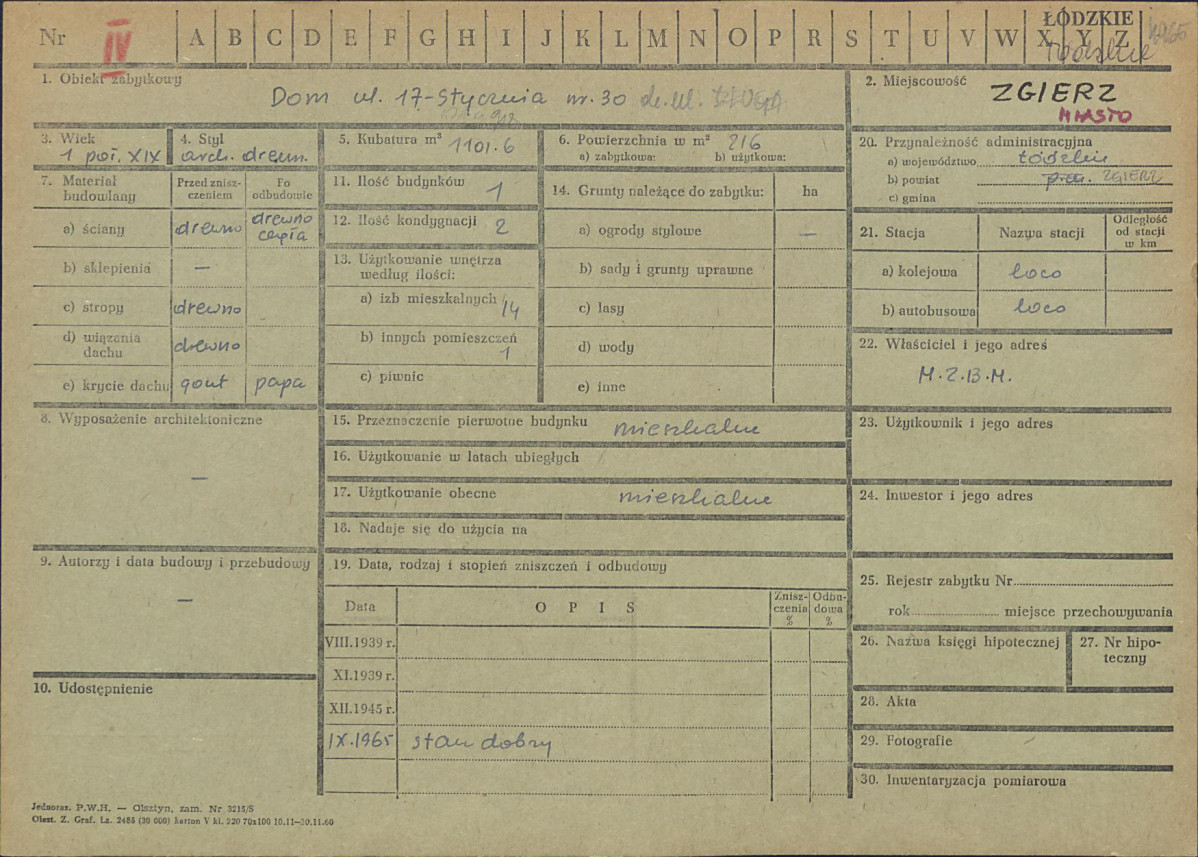 Nr IV A B C D E F G H I J K L M N O P R S T U V W X Y Z
ŁÓDZKIE
łódzkie
1. Obiekt zabytkowy
Dom ul. 17-Stycznia nr. 30 ob. ul. DŁUGA
2. Miejscowość ZGIERZ
MIASTO
3. Wiek
1 poł. XIX
4. Styl
arch. drewn.
5. Kubatura m³ 1101.6
6. Powierzchnia w m² 216
a) zabytkowa: b) użytkowa:
20. Przynależność administracyjna
a) województwo łódzkie
b) powiat ZGIERZ
c) gmina
7. Materiał budowlany
Przed zniszczeniem
Po odbudowie
a) ściany drewno drewno cegła
b) sklepienia —
c) stropy drewno
d) wiązania dachu drewno
e) krycie dachu gont papa
11. Ilość budynków 1
12. Ilość kondygnacji 2
13. Użytkowanie wnętrza według ilości:
a) izb mieszkalnych 14
b) innych pomieszczeń 1
c) piwnic
14. Grunty należące do zabytku: ha
a) ogrody stylowe —
b) sady i grunty uprawne
c) lasy
d) wody
e) inne
21. Stacja Nazwa stacji Odległość od stacji w km
a) kolejowa loco
b) autobusowa loco
22. Właściciel i jego adres
M.Z.B.M.
8. Wyposażenie architektoniczne
—
9. Autorzy i data budowy i przebudowy
—
10. Udostępnienie
15. Przeznaczenie pierwotne budynku mieszkalne
16. Użytkowanie w latach ubiegłych
17. Użytkowanie obecne mieszkalne
18. Nadaje się do użycia na
19. Data, rodzaj i stopień zniszczeń i odbudowy
Data OPIS Zniszczenia % Odbudowa %
VIII.1939 r.
XI.1939 r.
XII.1945 r.
IX.1965 stan dobry
23. Użytkownik i jego adres
24. Inwestor i jego adres
25. Rejestr zabytku Nr
rok miejsce przechowywania
26. Nazwa księgi hipotecznej
27. Nr hipoteczny
28. Akta
29. Fotografie
30. Inwentaryzacja pomiarowa
Jednoraz. P.W.H. — Olsztyn, zam. Nr 3215/S
Olszt. Z. Graf. Lz. 2486 (30 000) karton V kl. 220 70x100 10.11—30.11.60